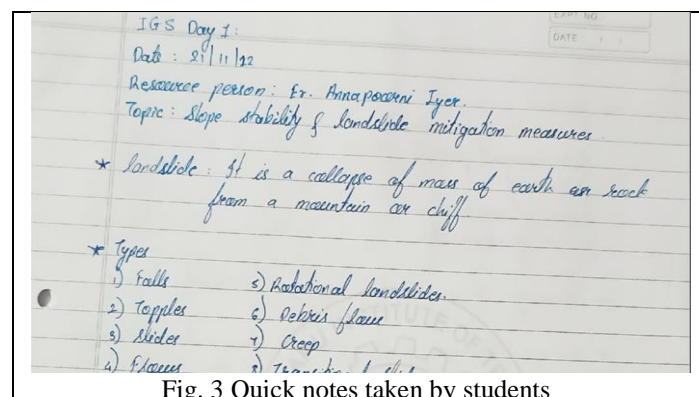 EXPT NO
DATE
IGS Day 1:
Date : 21/11/22
Resource person: Er. Annapoorni Iyer.
Topic: Slope stability & landslide mitigation measures.
* landslide: It is a collapse of mass of earth or rock
from a mountain or cliff.
* Types
1) Falls 5) Rotational landslides.
2) Topples 6) Debris flow
3) Slides 7) Creep
4) Flows 8)
INSTITUTE OF
Fig. 3 Quick notes taken by students